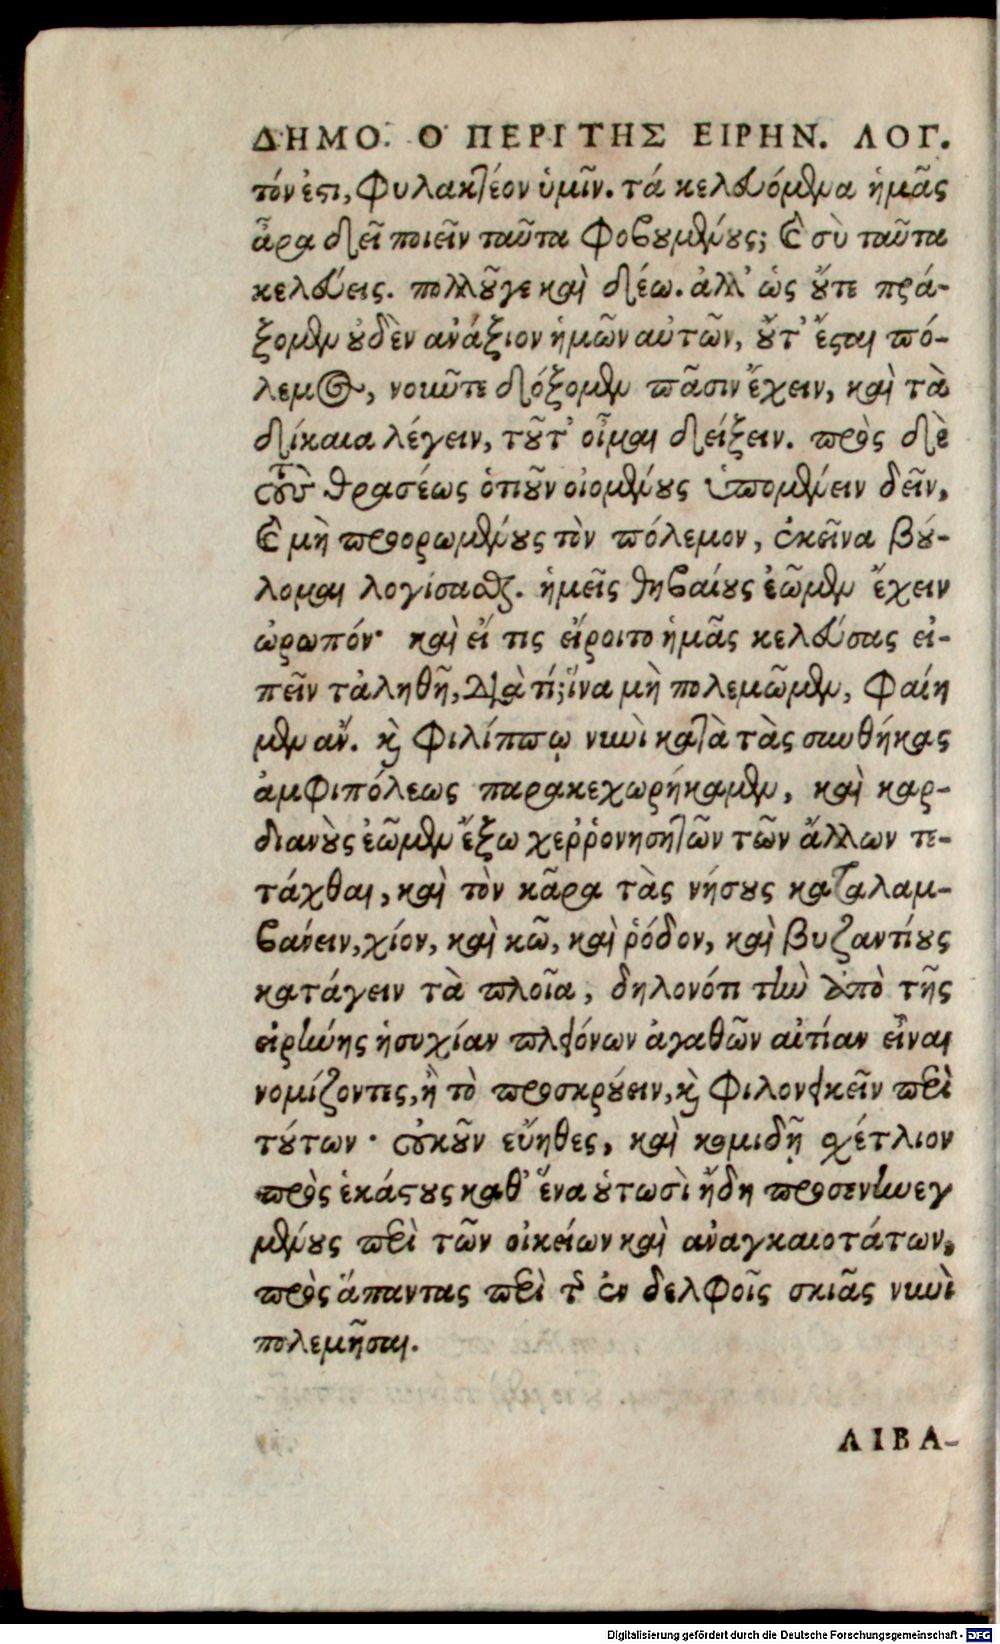 ΔΗΜΟ. Ο ΠΕΡΙ ΤΗΣ ΕΙΡΗΝ. ΛΟΓ.
τόν ἐστι, φυλακτέον ὑμῖν. τά κελευόμενα ἡμᾶς
ἆρα δεῖ ποιεῖν ταῦτα φοβουμένους; καὶ σὺ ταῦτα
κελεύεις. πολλοῦγε καὶ δέω. ἀλλ' ὡς οὔτε πρά-
ξομεν οὐδὲν ἀνάξιον ἡμῶν αὐτῶν, οὔτ' ἔσται πό-
λεμος, νοῦντε δόξομεν πᾶσιν ἔχειν, καὶ τὰ
δίκαια λέγειν, τοῦτ' οἶμαι δείξειν. πρὸς δὲ
τοὺς θρασέως ὁτιοῦν οἰομένους ὑπομένειν δεῖν,
καὶ μὴ προορωμένους τὸν πόλεμον, ἐκεῖνα βού-
λομαι λογίσασθαι. ἡμεῖς θηβαίους ἐῶμεν ἔχειν
ὠρωπόν· καὶ εἴ τις εἴροιτο ἡμᾶς κελεύσας εἰ-
πεῖν τἀληθῆ, διὰ τί; ἵνα μὴ πολεμῶμεν, φαίη
μεν ἄν. καὶ φιλίππῳ νυνὶ κατὰ τὰς συνθήκας
ἀμφιπόλεως παρακεχωρήκαμεν, καὶ καρ-
διανοὺς ἐῶμεν ἔξω χερῥονησητῶν τῶν ἄλλων τε-
τάχθαι, καὶ τὸν κᾶρα τὰς νήσους καταλαμ-
βάνειν, χίον, καὶ κῶ, καὶ ῥόδον, καὶ βυζαντίους
κατάγειν τὰ πλοῖα, δηλονότι τὴν ἀπὸ τῆς
εἰρήνης ἡσυχίαν πλειόνων ἀγαθῶν αἰτίαν εἶναι
νομίζοντες, ἢ τὸ προσκρούειν, καὶ φιλονεικεῖν περὶ
τούτων· οὐκοῦν εὔηθες, καὶ κομιδῇ σχέτλιον
πρὸς ἑκάστους καθ' ἕνα οὑτωσὶ ἤδη προσενηνεγ
μένους περὶ τῶν οἰκείων καὶ ἀναγκαιοτάτων,
πρὸς ἅπαντας περὶ τῆς ἐν δελφοῖς σκιᾶς νυνὶ
πολεμῆσαι.
ΛΙΒΑ-
Digitalisierung gefördert durch die Deutsche Forschungsgemeinschaft - DFG